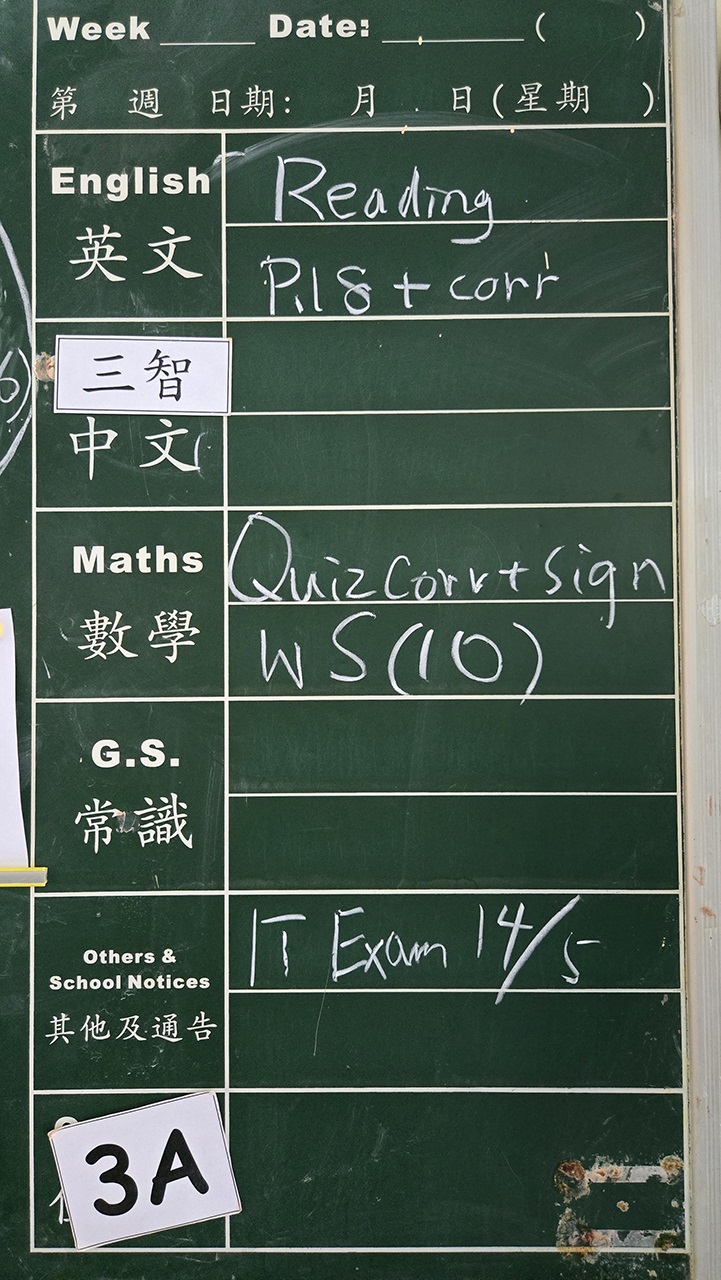 Week ____ Date: ______ ( )
第 週 日期: 月 日(星期 )
English
英文
Reading
P.18 + corr
三智
中文
Maths
數學
Quiz corr + sign
WS(10)
G.S.
常識
Others &
School Notices
其他及通告
IT Exam 14/5
3A